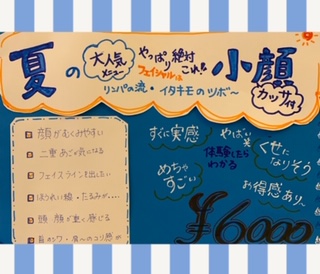 夏の
大人気
メニュー
やっぱり絶対
フェイシャルは
これ!!
小顔
カッサ付
リンパの流・イタキモのツボ〜
顔がむくみやすい
二重あごが気になる
フェイスラインを出したい
ほうれい線・たるみが‥‥
頭 顔が重く感じる
首まわり・肩へのコリ感が
すぐに実感
やばい
体験したら
わかる
くせに
なりそう
めちゃ
すごい
お得感あり、
¥6000